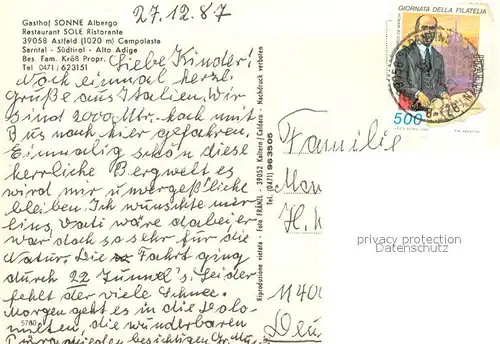 27.12.87
Gasthof SONNE Albergo
Restaurant SOLE Ristorante
39058 Astfeld (1020 m) Campolasta
Sarntal - Südtirol - Alto Adige
Bes. Fam. Kröß Propr.
Tel 0471 / 623151
Liebe Kinder!
Noch einmal herzl.
Grüße aus Italien. Wir
sind 2000 Mtr. hoch mit
Bus nach hier gefahren.
Einmalig schön diese
herrliche Bergwelt es
wird mir unvergeßliche
bleiben. Ich wünschte mir
eins, Vati wäre dabei er
war doch so sehr für die
Natur. Die Fahrt ging
durch 22 Tunnel's. Leider
fehlt der viele Schnee.
Morgen geht es in die Dolo-
5780
mitten, die wunderbaren
besichtigen
Riproduzione vietata - Foto FRÄNZL - 39052 Kaltern / Caldaro - Nachdruck verboten
Tel. (0471) 963505
GIORNATA DELLA FILATELIA
500
Familie
H.
Deu
privacy protection
Datenschutz